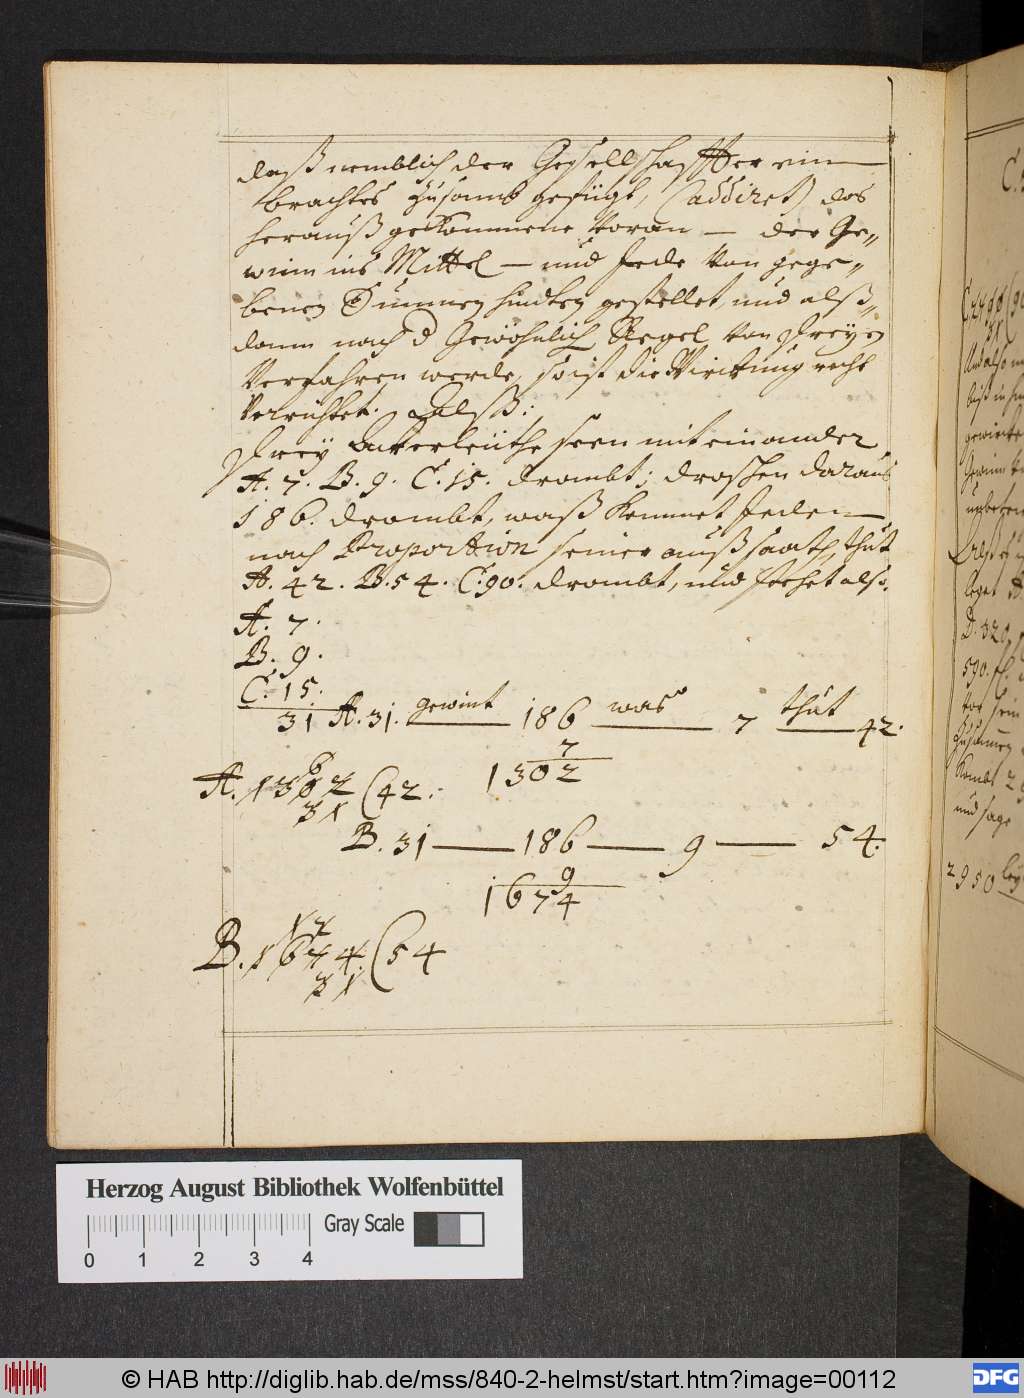 daß nemblich der Gesellschaffter ein
brachtes zusamb gefügt, (addiret) das
herauß gekommene voran — der Ge„
winn ins Mittel — und jede von gege„
benen Summen hindten gestellet, und alß„
dann nach d Gewöhnlich Regel von Dreyen
verfahren werde, so ist die Wirckung recht
verrichtet. Alß:
Drey Ackerleüthe seen mit einander
A. 7. B. 9. C. 15. drombt; droschen daraus
186. drombt, waß kommet jeden
nach Proportion seiner außsaath, thut
A. 42. B. 54. C. 90. drombt, und stehet also.
A. 7.
B. 9.
C. 15.
31 A. 31. gewint 186 was 7 thüt 42.
7
1302
6
A. 1302 (42.
31
B. 31 — 186 — 9 — 54.
9
1674
12
B. 1674. (54
31
C.
(90
31
Und also
biß in
gewin
D. 320
590. fl.
und sage
2950
Herzog August Bibliothek Wolfenbüttel
Gray Scale
0 1 2 3 4
© HAB http://diglib.hab.de/mss/840-2-helmst/start.htm?image=00112
DFG